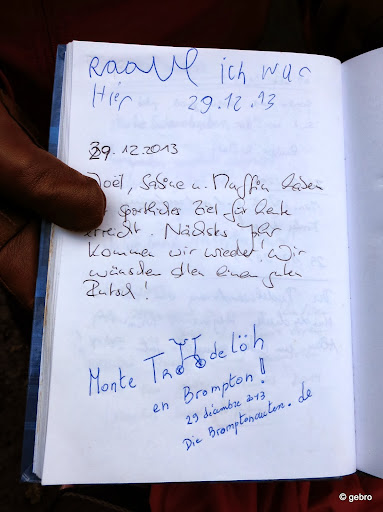 RaaVl ich war
Hier 29.12.13
29.12.2013
Joël, Sabine u. Muffin haben
sportliches Ziel für heute
erreicht. Nächstes Jahr
kommen wir wieder! Wir
wünschen allen einen guten
Rutsch!
Monte Troddelöh
en Brompton!
29 décembre 2013
Die Bromptonauten.de
© gebro